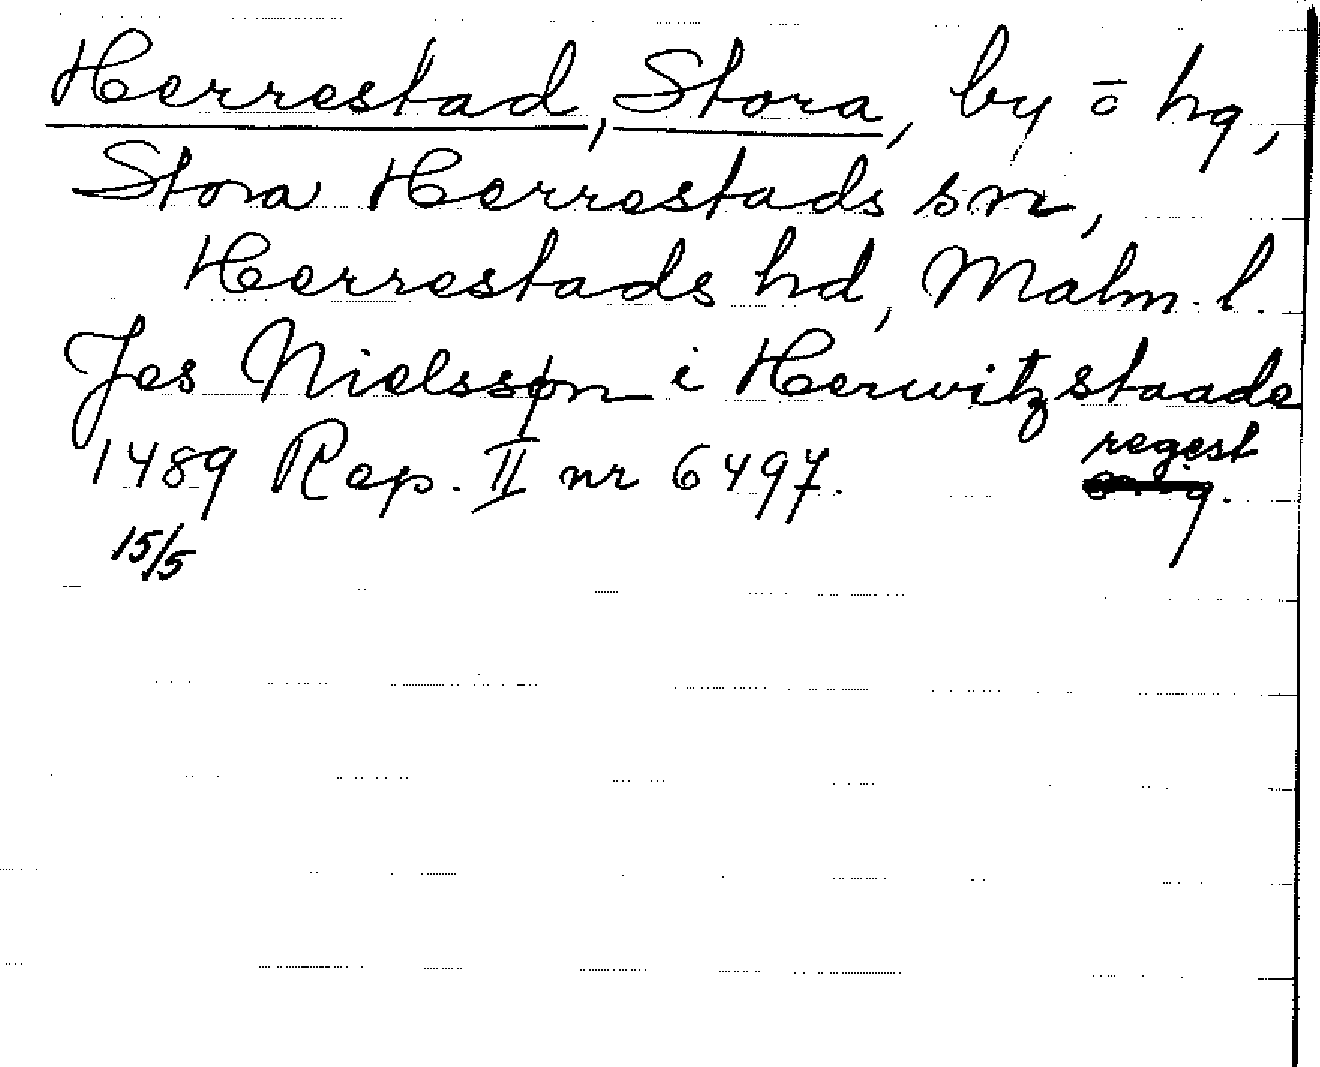 Herrestad, Stora, by ō hg,
Stora Herrestads sn,
Herrestads hd, Malm. l.
Jes Nielssøn i Herwitzstade
1489 Rep. II nr 6497. regest
15/5